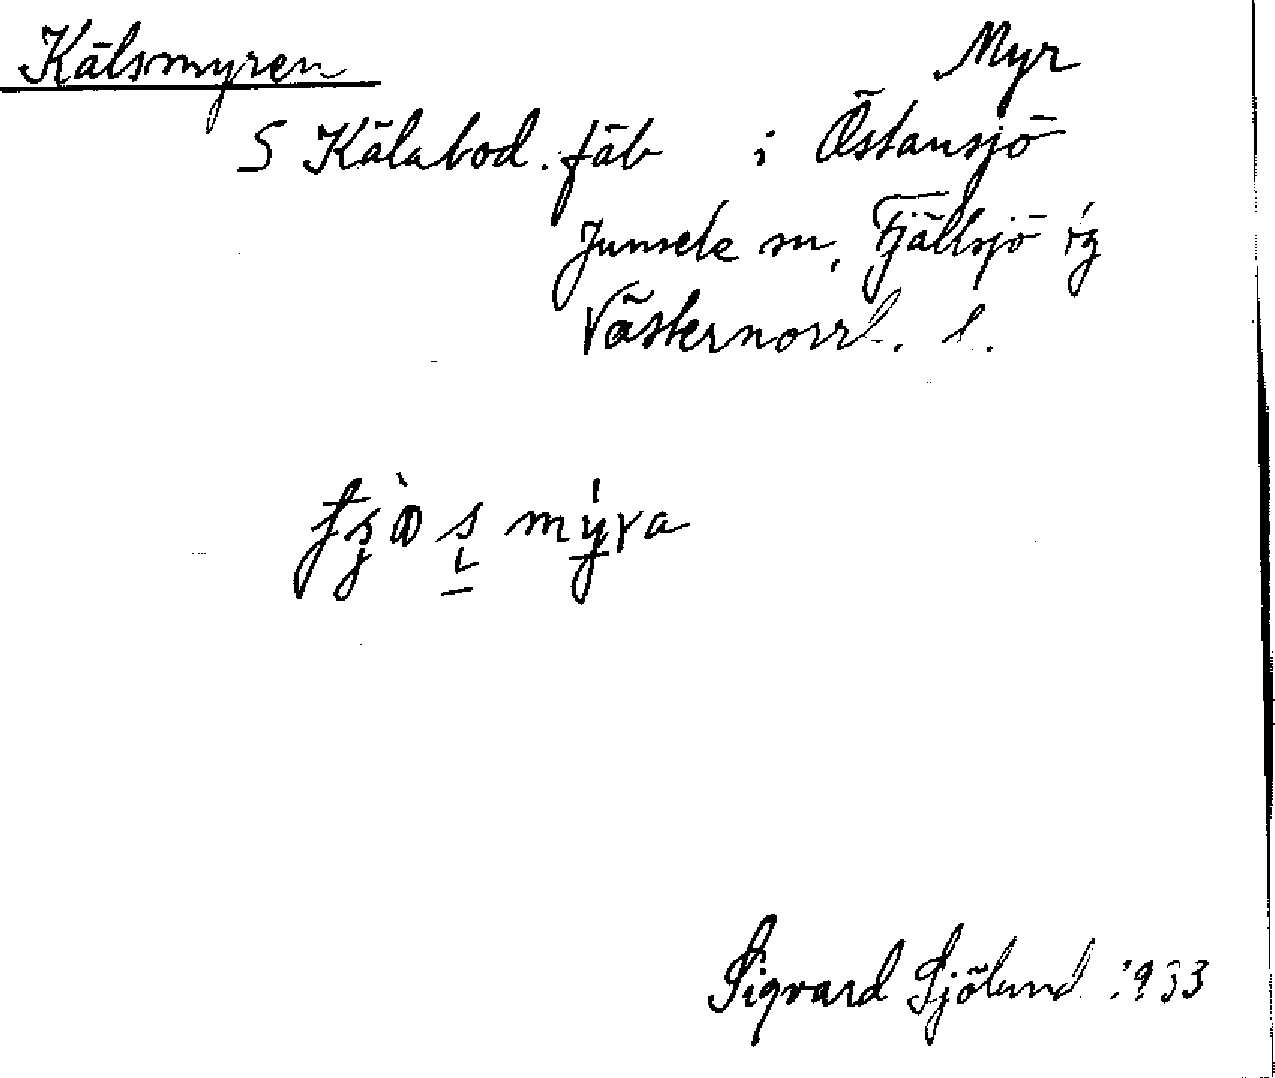 Kälsmyren Myr
S Kälabod. fäb i Östansjö
Junsele sn, Fjällsjö tg
Västernorrl. l.
myra
Sigvard Sjölund 1933